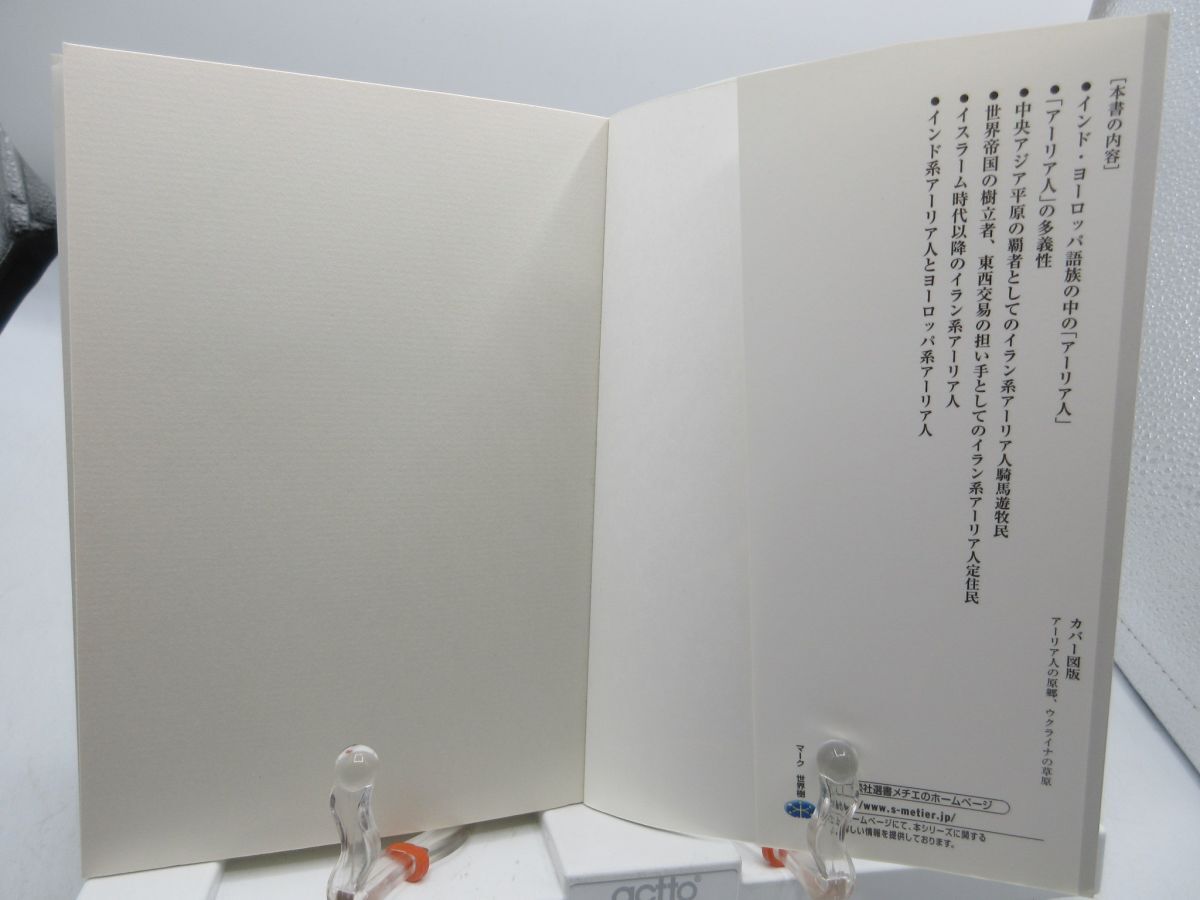 ［本書の内容］
●インド・ヨーロッパ語族の中の「アーリア人」
●「アーリア人」の多義性
●中央アジア平原の覇者としてのイラン系アーリア人騎馬遊牧民
●世界帝国の樹立者、東西交易の担い手としてのイラン系アーリア人定住民
●イスラーム時代以降のイラン系アーリア人
●インド系アーリア人とヨーロッパ系アーリア人
カバー図版
アーリア人の原郷、ウクライナの草原
マーク 世界樹
社選書メチエのホームページ
//www.s-metier.jp/
ホームページにて、本シリーズに関する
しい情報を提供しております。
actto